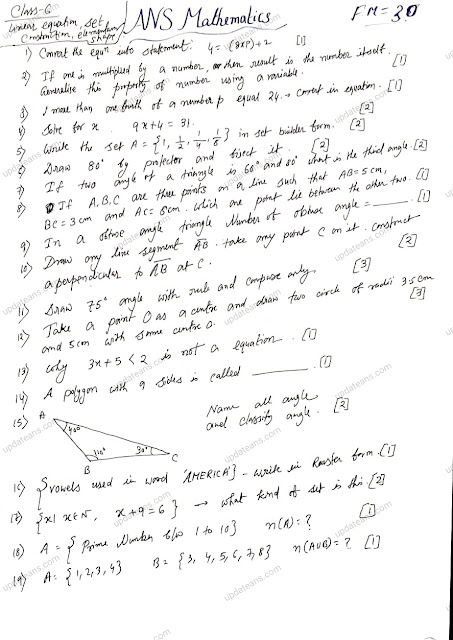 Class-6
Linear equation, set
Construction, elementary shape
ANS Mathematics
FM=30
1) Convert the equn into statement: 4 = (8xp)+2 [1]
2) If one is multiplied by a number, then result is the number itself.
Generalise this property of number using a variable. [1]
3) 1 more than one forth of a number p equal 24 → Convert in equation. [1]
4) Solve for x. 9x+4 = 31. [2]
5) Write the set A = {1, 1/2, 1/4, 1/8} in set builder form. [2]
6) Draw 80° by protector and bisect it. [2]
7) If two angle of a triangle is 60° and 80° what is the third angle. [2]
8) If A,B,C are three points on a line such that AB = 5cm,
BC = 3cm and AC = 8cm. which one point lie between the other two. [1]
9) In a obtuse angle triangle Number of obtuse angle = ______. [1]
10) Draw any line segment AB. take any point C on it. construct
a perpendicular to AB at C. [2]
11) Draw 75° angle with rule and compass only. [3]
12) Take a point O as a centre and draw two circle of radii 3.5cm
and 5cm with same centre O. [3]
13) why 3x+5 < 2 is not a equation. [1]
14) A polygon with 9 sides is called ______. [1]
15) A
40°
110°
30°
B
C
Name all angle
and classify angle. [2]
16) {vowels used in word 'AMERICA'} - write in Roaster form. [1]
17) {x| x∈N, x+9=6} → what kind of set is this. [2]
18) A = { Prime Number b/w 1 to 10} n(A) = ? [1]
19) A = {1,2,3,4} B = {3, 4, 5, 6, 7, 8} n(AUB) = ? [1]
updateans.com